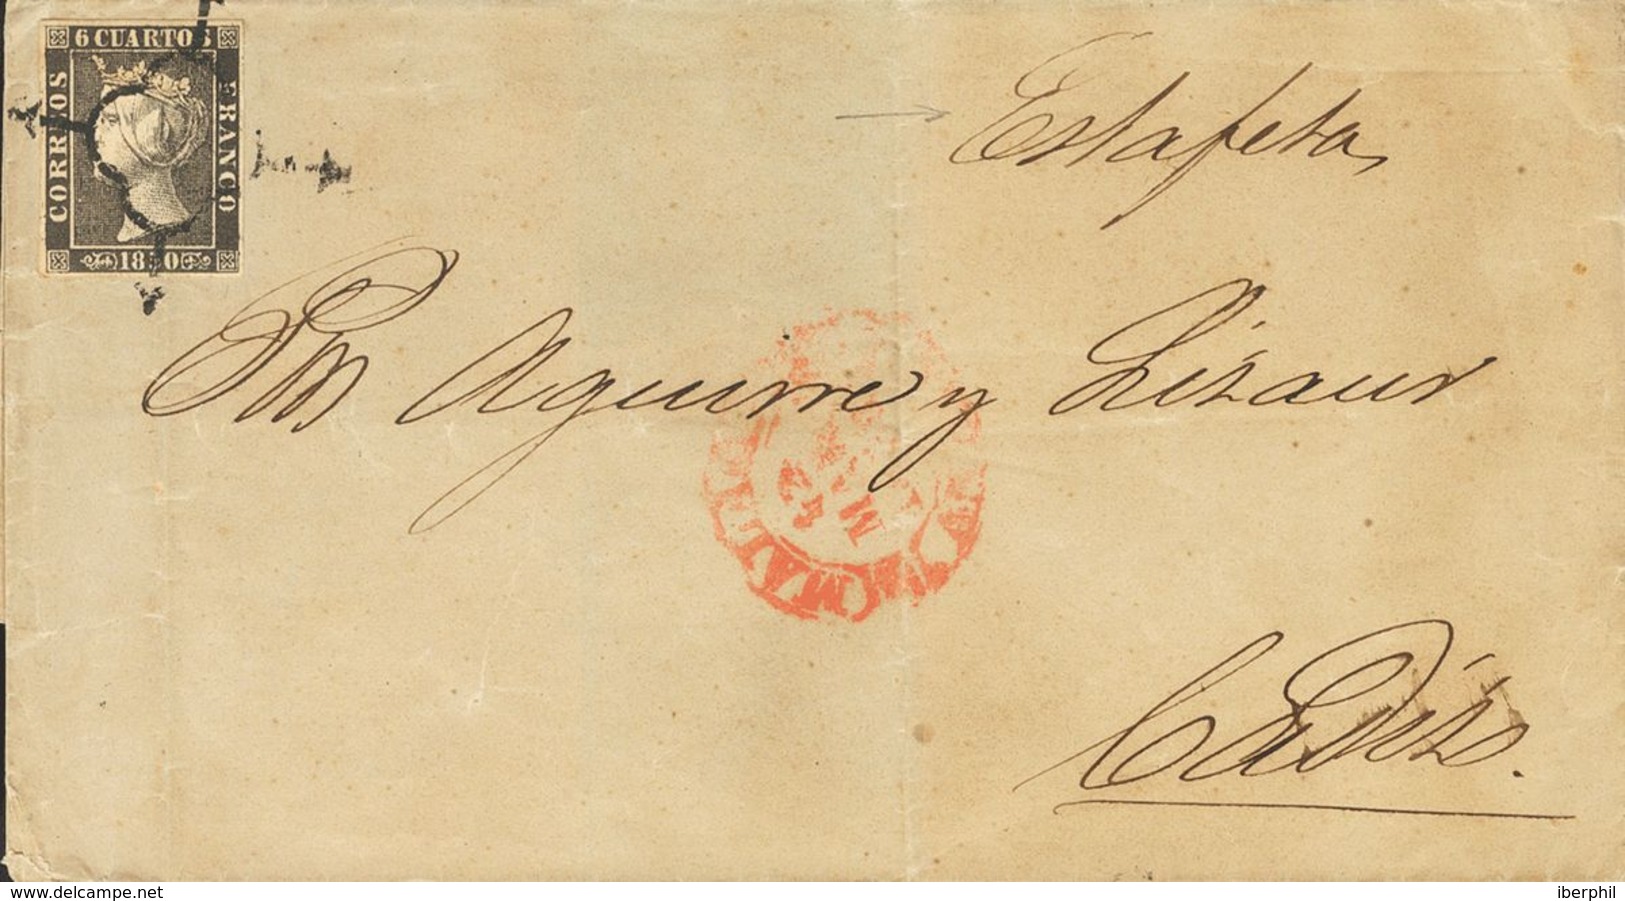 6 CUARTOS
CORREOS
FRANCO
1850
Estafeta
Aguirre y Lizaur
MADRID
Cadiz.
www.delcampe.net
iberphil